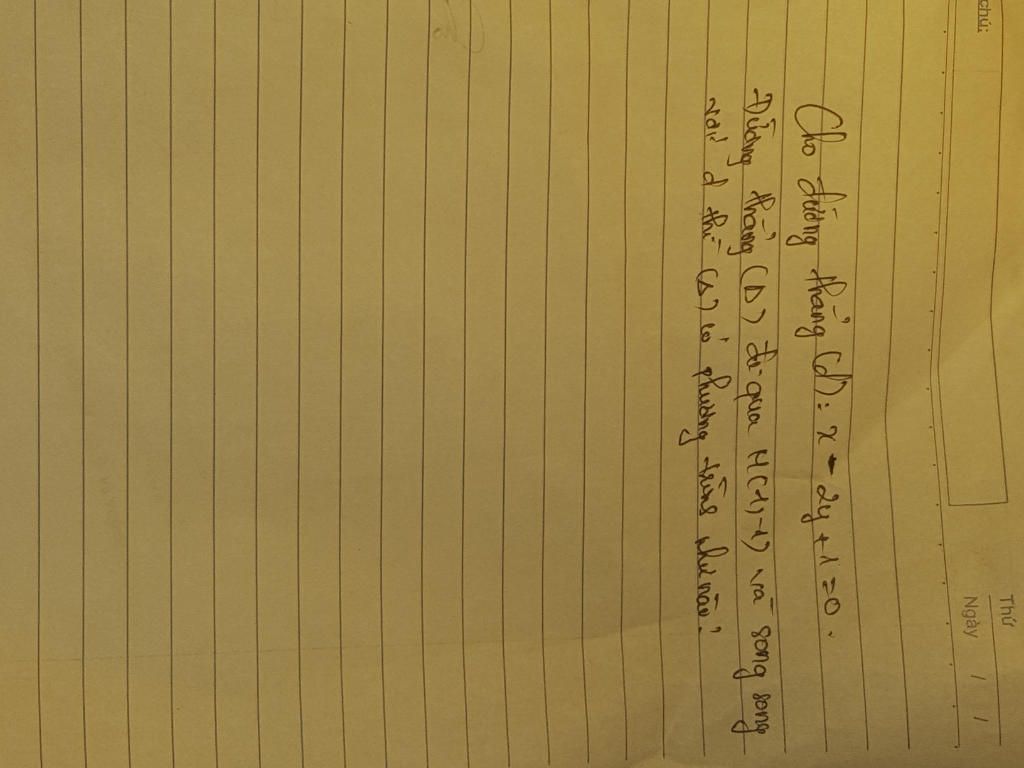 chú:
Thứ
Ngày / /
Cho đường thẳng (d): x - 2y + 1 = 0.
Đường thẳng (D) đi qua M(1,-1) và song song
với d thì (Δ) có phương trình như nào?